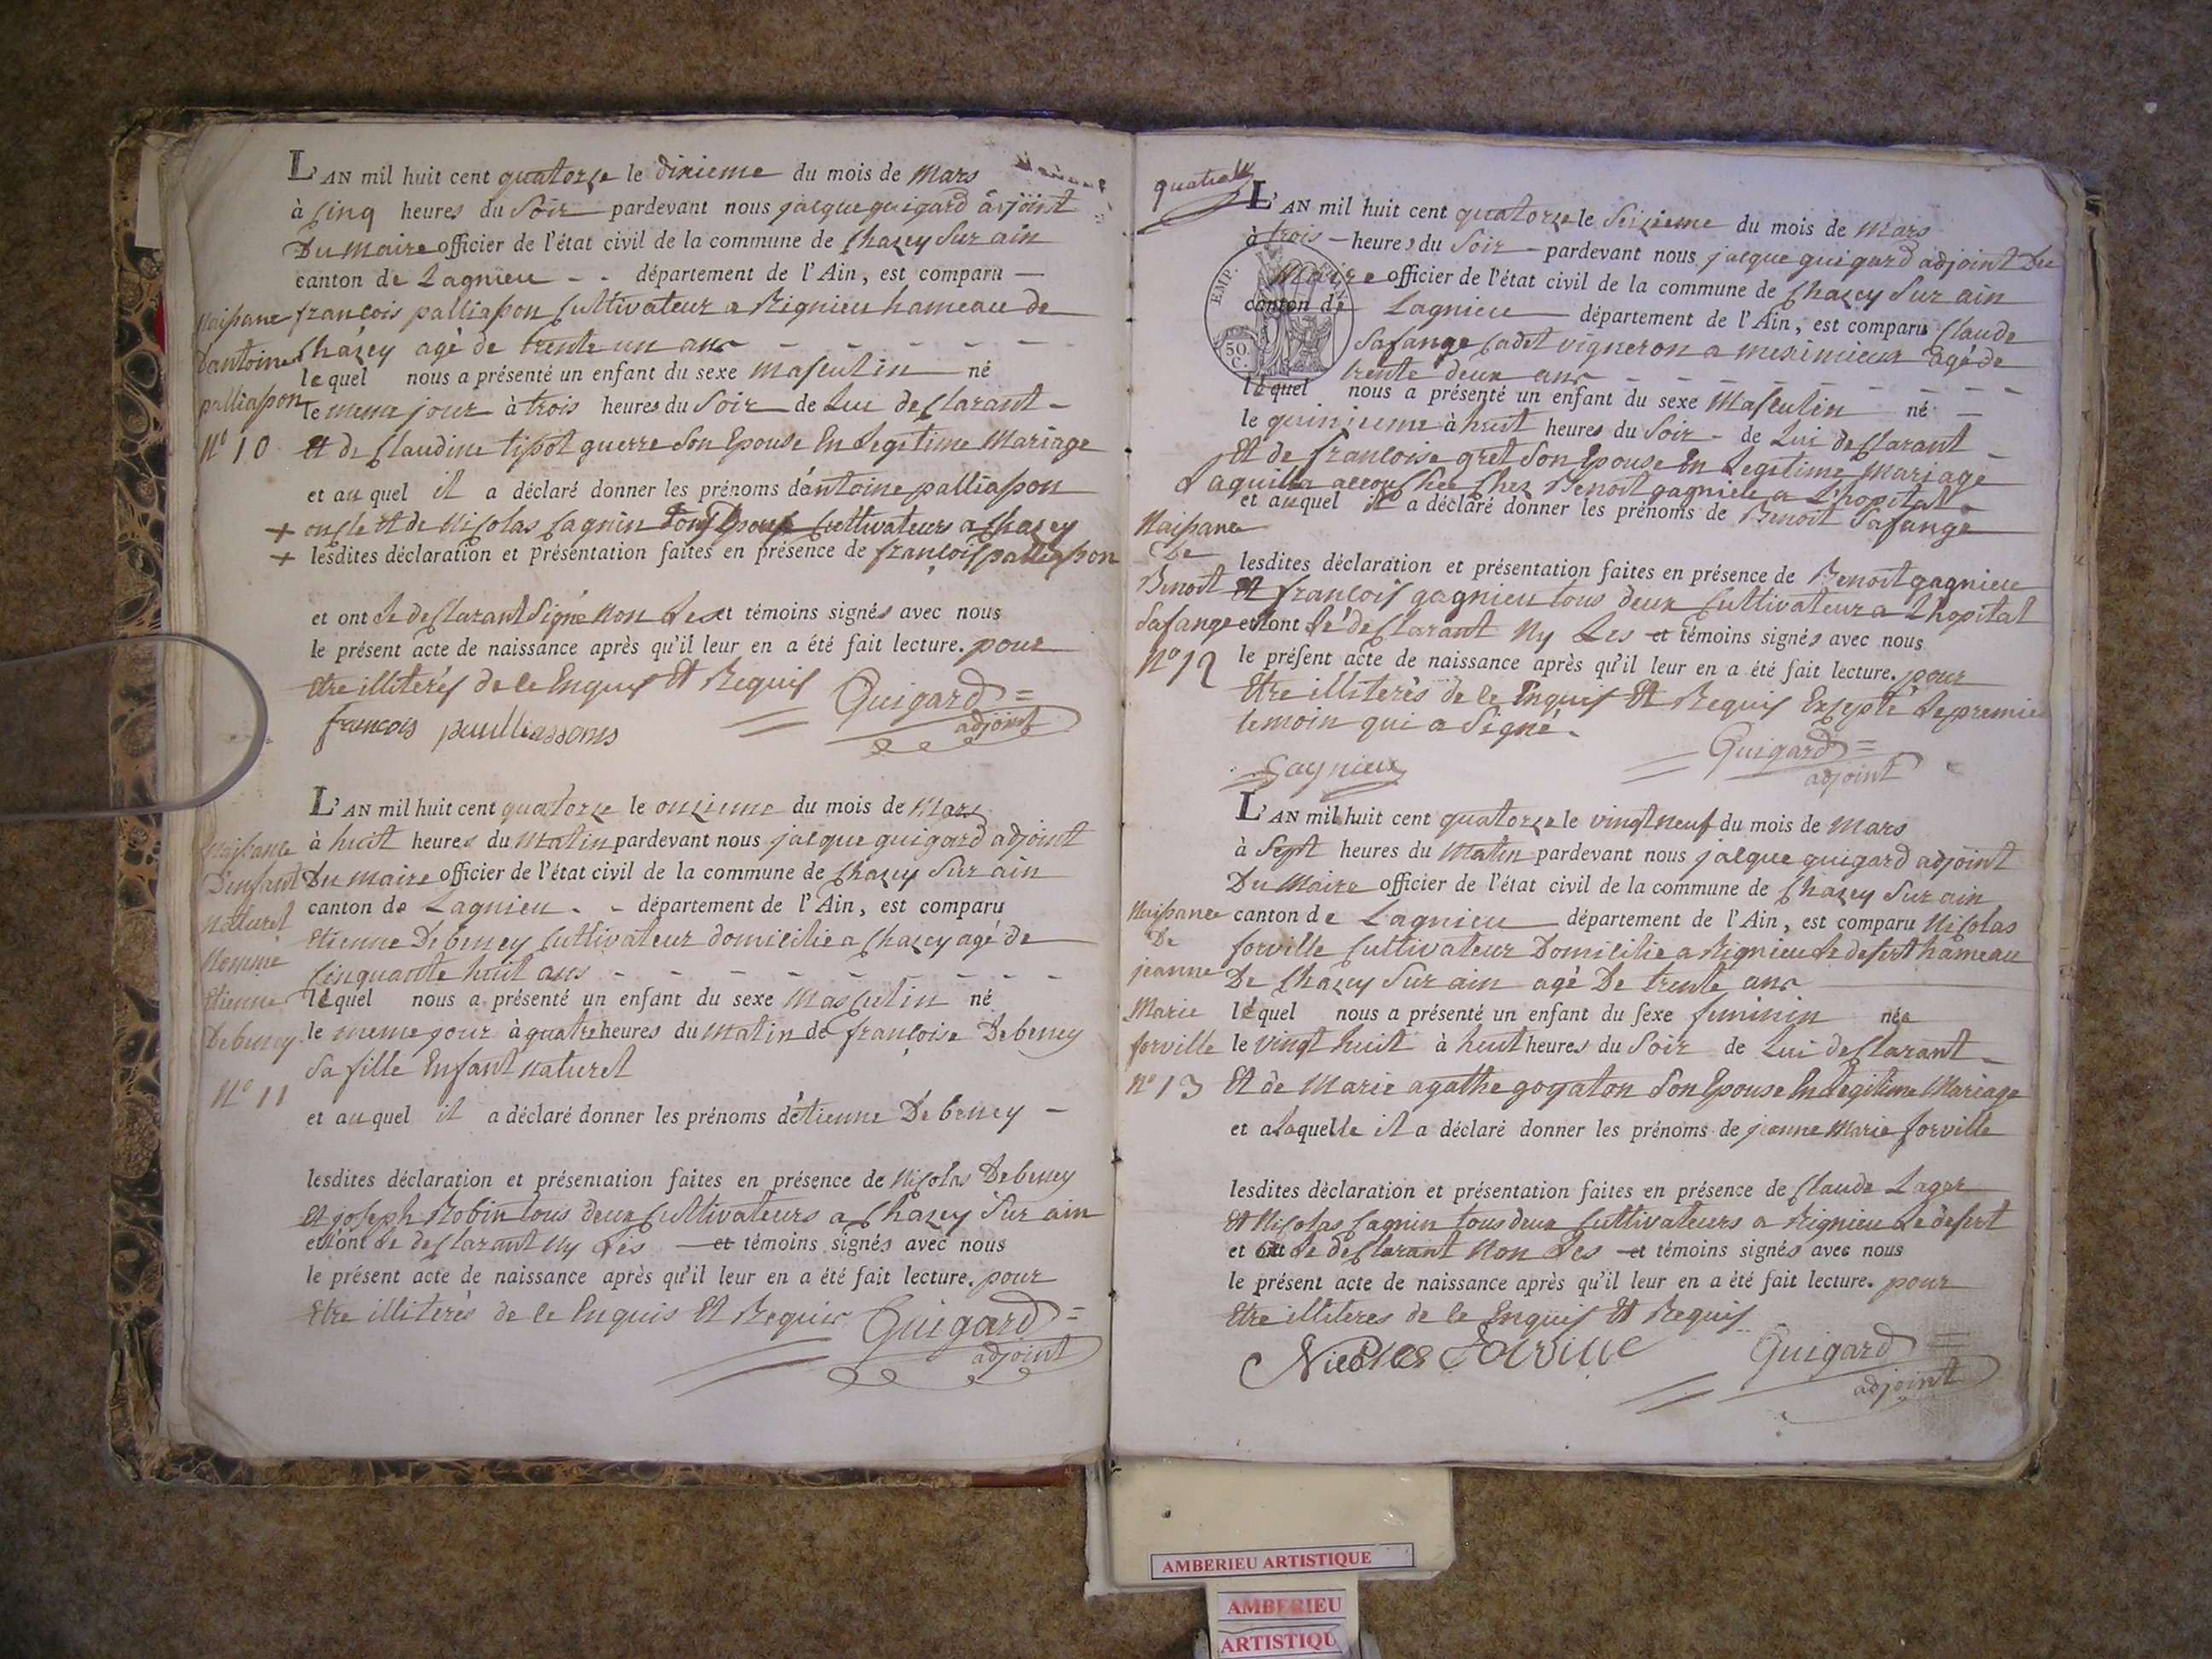 L'AN mil huit cent quatorze le dixieme du mois de Mars
à cinq heures du Soir pardevant nous jacque guigard adjoint
Du Maire officier de l'état civil de la commune de Chazey Sur ain
canton de Lagnieu - - département de l'Ain, est comparu —
françois palliasson Cultivateur a Rignieu hameau de
Chazey agé de trente un ans
lequel nous a présenté un enfant du sexe masculin né
le meme jour à trois heures du Soir de Lui declarant -
Et de Claudine tissot guerre Son Epouse En Legitime Mariage
et au quel il a déclaré donner les prénoms d'antoine palliasson
+ oncle Et de Nicolas Cagnin Cultivateurs a Chazey
+ lesdites déclaration et présentation faites en présence de françois palliasson
et ont Le declarant Signé Non Les et témoins signés avec nous
le présent acte de naissance après qu'il leur en a été fait lecture. pour
Etre illiterés de Ce Enquis Et Requis
françois paulliassons
Guigard
adjoint
Naissance
Dantoine
palliasson
N° 10
L'AN mil huit cent quatorze le onzieme du mois de Mars
à huit heures du Matin pardevant nous jacque guigard adjoint
Du maire officier de l'état civil de la commune de Chazey Sur ain
canton de Lagnieu - - département de l'Ain, est comparu
Etienne Debeney Cultivateur domicilié a Chazey agé de
Cinquante huit ans
léquel nous a présenté un enfant du sexe Masculin né
le meme jour à quatre heures du Matin de françoise Debeney
Sa fille Enfant naturel
et au quel il a déclaré donner les prénoms d'étienne Debeney -
lesdites déclaration et présentation faites en présence de Nicolas Debeney
Et joseph Robin tous deux Cultivateurs a Chazey Sur ain
et ont Le declarant Ny Les et témoins signés avec nous
le présent acte de naissance après qu'il leur en a été fait lecture. pour
Etre illiterés de Ce Enquis Et Requis
Guigard
adjoint
Naissance
D'enfant
Naturel
Nommé
Etienne
Debeney
N° 11
quatre
EMP.
50.
C.
L'AN mil huit cent quatorze le Seizieme du mois de Mars
à trois heures du Soir pardevant nous jacque guigard adjoint Du
Maire officier de l'état civil de la commune de Chazey Sur ain
canton de Lagnieu département de l'Ain, est comparu Claude
Safange Cadet vigneron a meximieux agé de
trente deux ans
léquel nous a présenté un enfant du sexe Masculin né
le quinzieme à huit heures du Soir - de Lui declarant
Et de françoise gret Son Epouse En Legitime Mariage
Laquelle accouchée Chez Benoit gagnieu a L'hopital
et auquel il a déclaré donner les prénoms de Benoit Safange
lesdites déclaration et présentation faites en présence de Benoit gagnieu
Et françois gagnieu tous deux Cultivateur a Lhopital
et ont Le declarant Ny Les et témoins signés avec nous
le présent acte de naissance après qu'il leur en a été fait lecture. pour
Etre illiterés de Ce Enquis Et Requis Excepté Le premier
temoin qui a Signé.
Gagnieux
Guigard
adjoint
Naissance
De
Benoit
Safange
N° 12
L'AN mil huit cent quatorze le vingt neuf du mois de Mars
à Sept heures du Matin pardevant nous jacque guigard adjoint
Du Maire officier de l'état civil de la commune de Chazey Sur ain
canton de Lagnieu département de l'Ain, est comparu Nicolas
forville Cultivateur Domicilié a Rignieu Le desert hameau
De Chazey Sur ain agé De trente ans
léquel nous a présenté un enfant du sexe feminin née
le vingt huit à huit heures du Soir de Lui declarant
Et de Marie agathe goyaton Son Epouse En Legitime Mariage
et alaquelle il a déclaré donner les prénoms de jeanne Marie forville
lesdites déclaration et présentation faites en présence de Claude Lager
Et Nicolas Cagnin tous deux Cultivateurs a Rignieu Le desert
et ont Le declarant Non Les et témoins signés avec nous
le présent acte de naissance après qu'il leur en a été fait lecture. pour
Etre illiteres de Ce Enquis Et Requis
Nicolas Forville
Guigard
adjoint
Naissance
De
jeanne
Marie
forville
N° 13
AMBERIEU ARTISTIQUE
AMBERIEU
ARTISTIQU